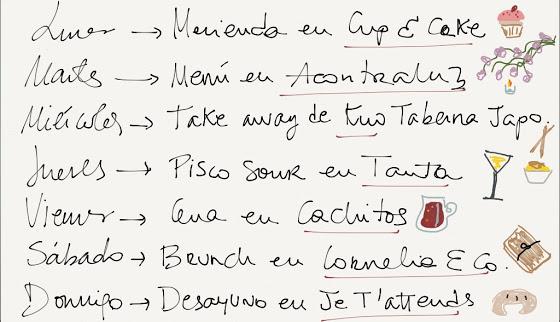 Lunes → Merienda en Cup & Cake
Martes → Menú en Acontraluz
Miércoles → Take away de Kuo Taberna Japo.
Jueves → Pisco Sour en Tanta
Viernes → Cena en Cachitos
Sábado → Brunch en Cornelia & Co.
Domingo → Desayuno en Je T'attends